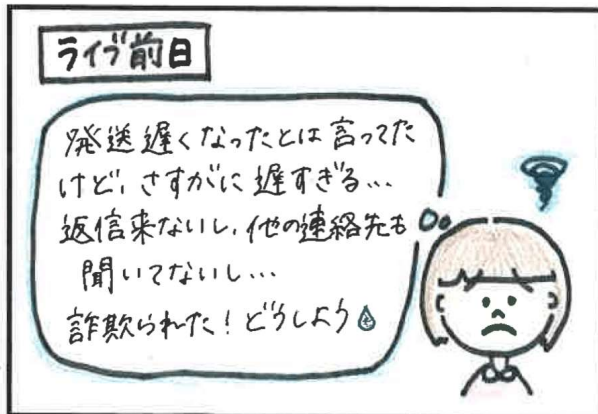 ライブ前日
発送遅くなったとは言ってた
けど、さすがに遅すぎる…
返信来ないし、他の連絡先も
聞いてないし…
詐欺られた!どうしよう